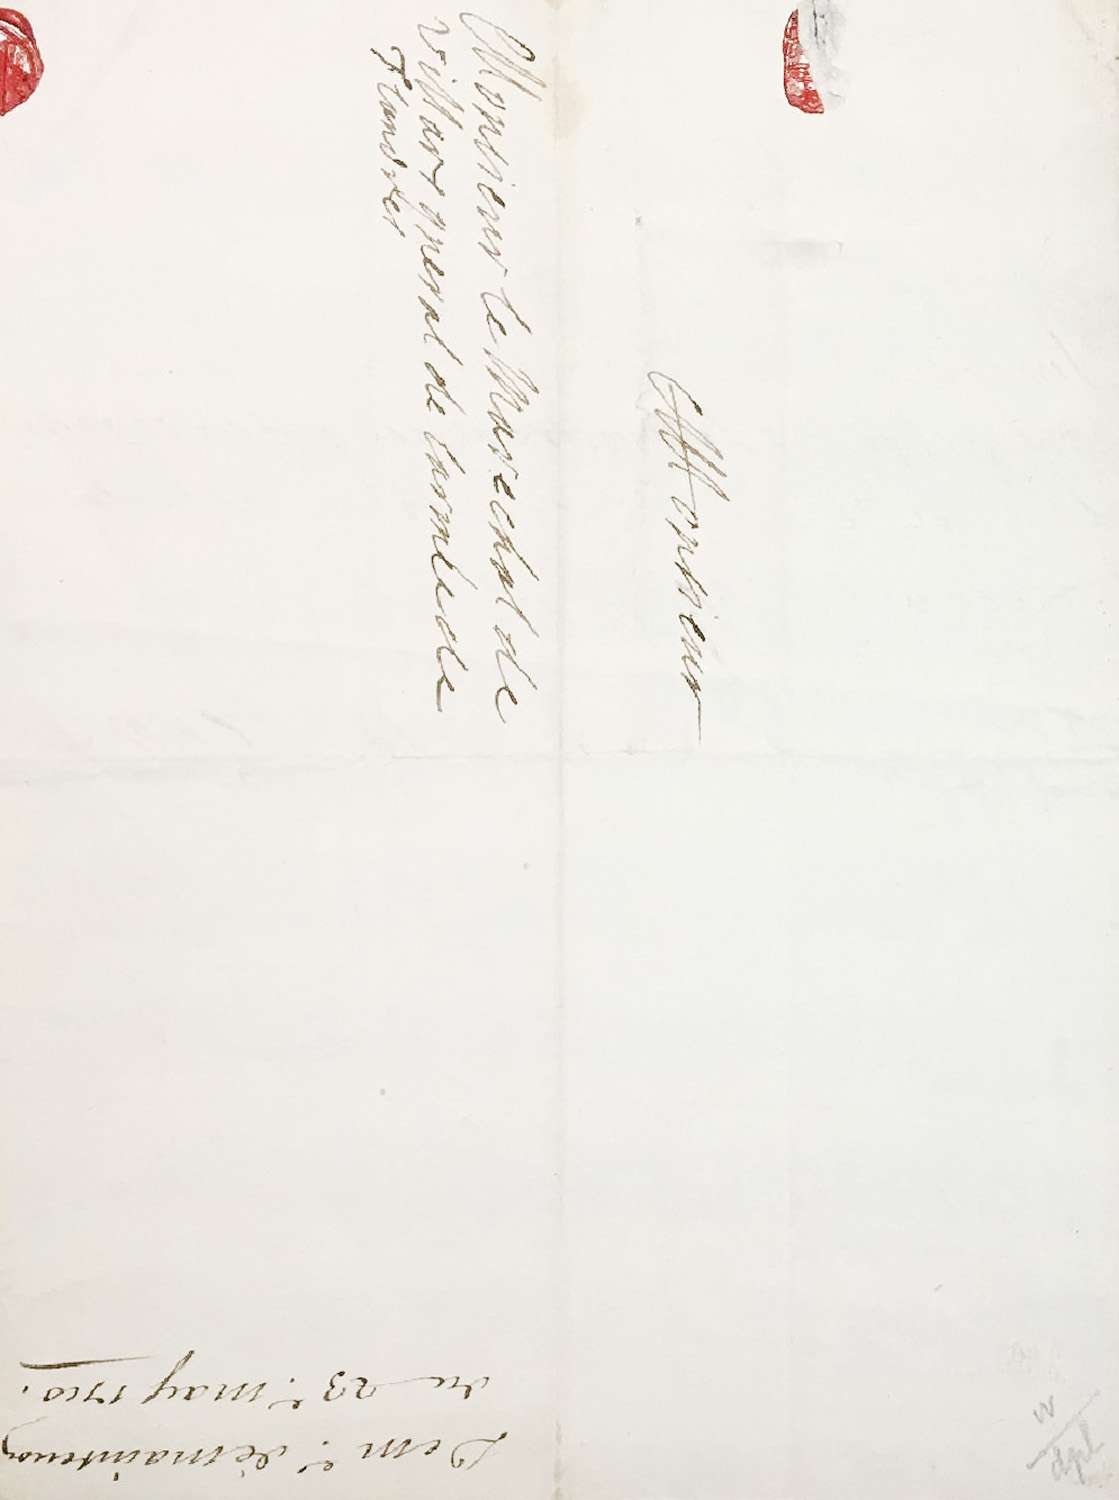 Monsieur
Monsieur le Marechal de
villars gneral de larmée de
Flandres
De m.e de maintenon
du 23.e may 1710.